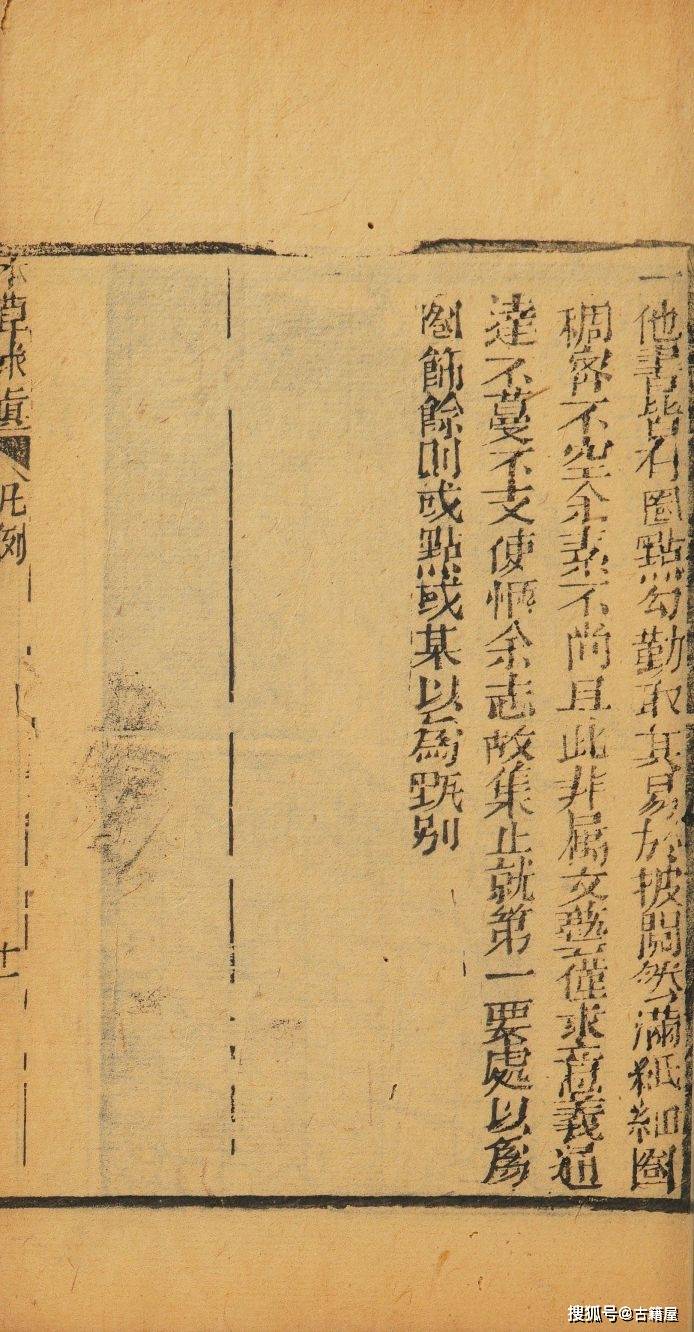 一他書皆有圈點勾勒取其易於披閱然滿紙細圈
稠密不空余素不尚且此非屬文藝僅求意義通
達不蔓不支便愜余志故集止就第一要處以為
圈飾餘則或點或某以為甄別
本草求真
凡例
十一
搜狐号@古籍屋